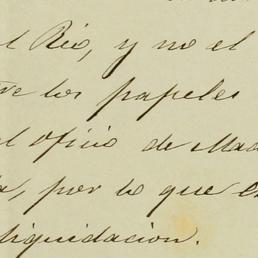 l Rio, y no el
de los papeles
l oficio de Mad
a, por lo que es
liquidacion.